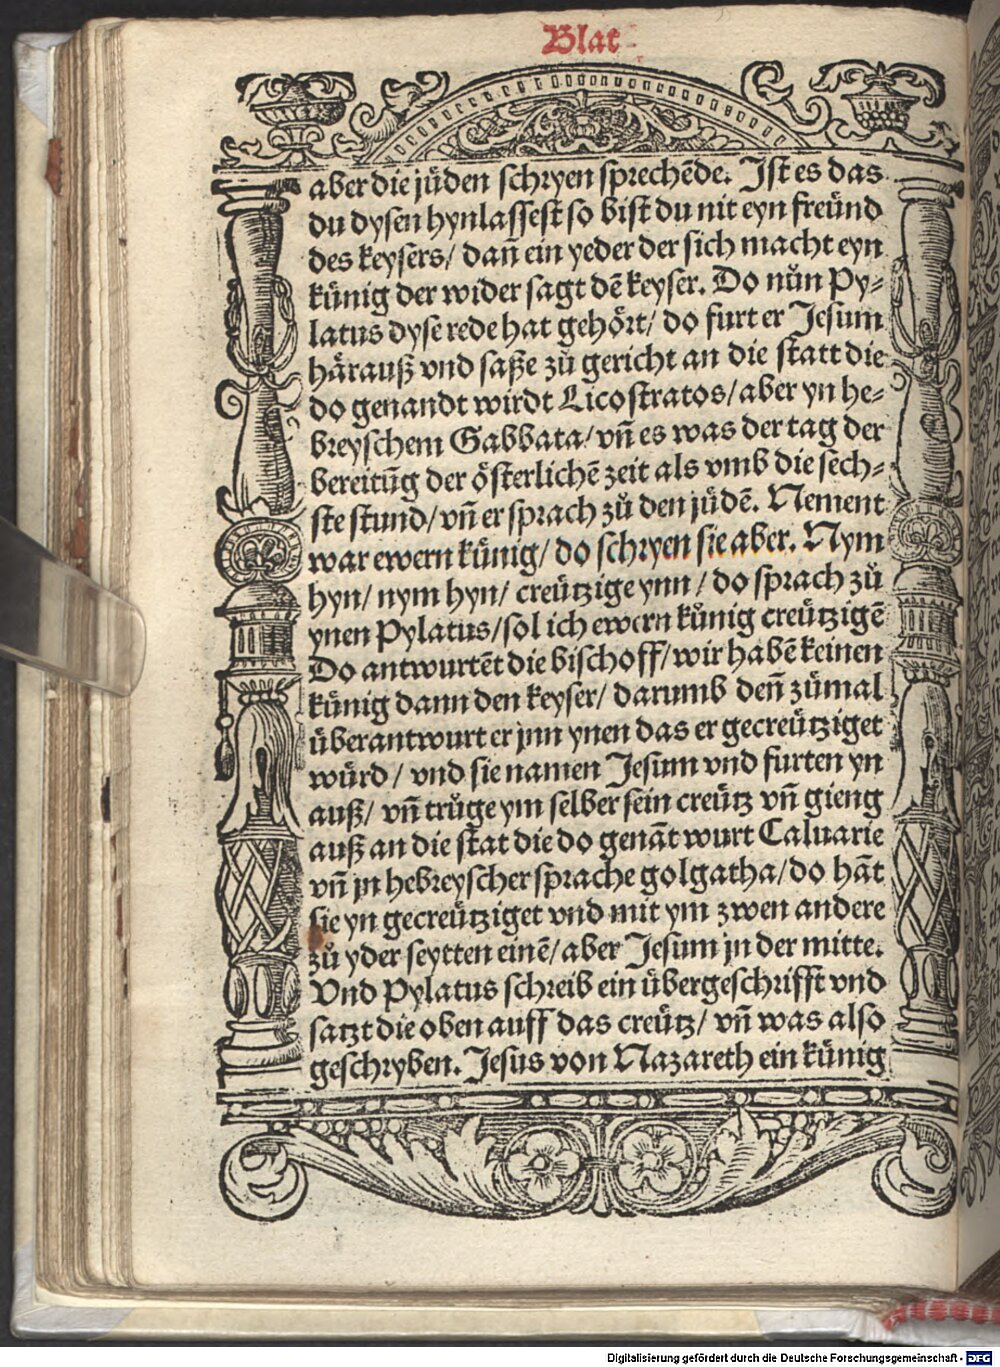 Blat
aber die jüden schryen sprechēde. Ist es das
du dysen hynlassest so bist du nit eyn freünd
des keysers/ dañ ein yeder der sich macht eyn
künig der wider sagt dē keyser. Do nůn Py⸗
latus dyse rede hat gehört/ do furt er Jesum
härauß vnd saße zů gericht an die statt die
do genandt wirdt Licostratos/ aber yn he⸗
breyschem Gabbata/ vñ es was der tag der
bereitūg der österlichē zeit als vmb die sech⸗
ste stund/ vñ er sprach zů den jüdē. Nement
war ewern künig/ do schryen sie aber. Nym
hyn/ nym hyn/ creützige ynn/ do sprach zů
ynen Pylatus/ sol ich ewern künig creützigē
Do antwurtēt die bischoff/ wir habē keinen
künig dann den keyser/ darumb deñ zůmal
überantwurt er jnn ynen das er gecreütziget
würd/ vnd sie namen Jesum vnd furten yn
auß/ vñ trůge ym selber sein creütz vñ gieng
auß an die stat die do genāt wurt Caluarie
vñ jn hebreyscher sprache golgatha/ do hāt
sie yn gecreütziget vnd mit ym zwen andere
zů yder seytten einē/ aber Jesum jn der mitte.
Vnd Pylatus schreib ein übergeschrifft vnd
satzt die oben auff das creütz/ vñ was also
geschryben. Jesus von Nazareth ein künig
Digitalisierung gefördert durch die Deutsche Forschungsgemeinschaft - DFG